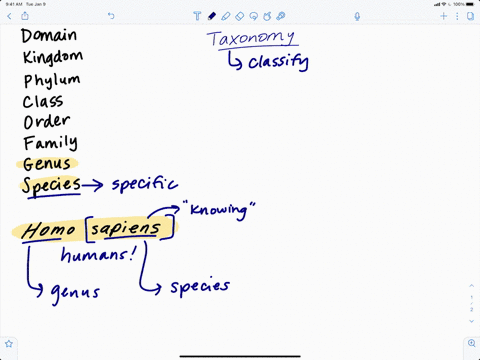 9:41 AM Tue Jan 9
100%
Taxonomy
classify
Domain
Kingdom
Phylum
Class
Order
Family
Genus
Species → specific
"knowing"
Homo [sapiens]
humans!
genus
species
1
/
2